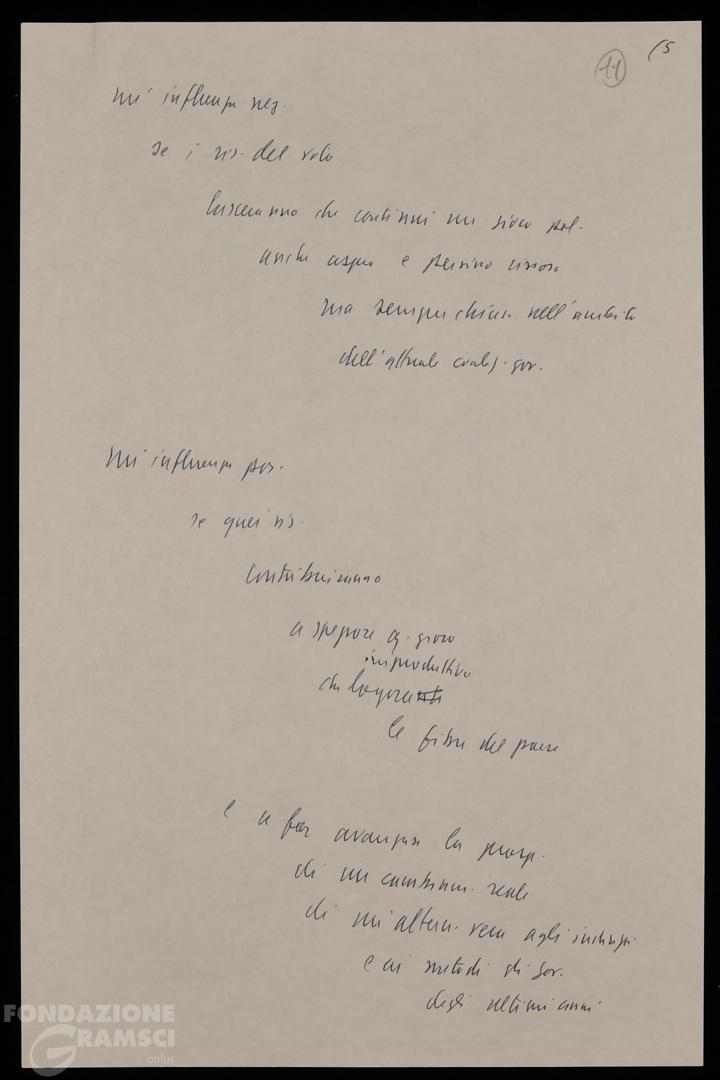 (5
11
un' influenza neg.
se i ris. del voto
lasceranno che continui un gioco pol.
anche aspro e persino rissoso
ma sempre chiuso nell'ambito
dell'attuale coaliz. gov.
un'influenza pos.
se quei ris.
contribuiranno
a spezzare q. gioco
improduttivo
che logora
le fibre del paese
e a far avanzare la prosp.
di un cambiam. reale
di un'altern. vera agli indirizzi
e ai metodi di gov.
degli ultimi anni
FONDAZIONE
GRAMSCI
onlus